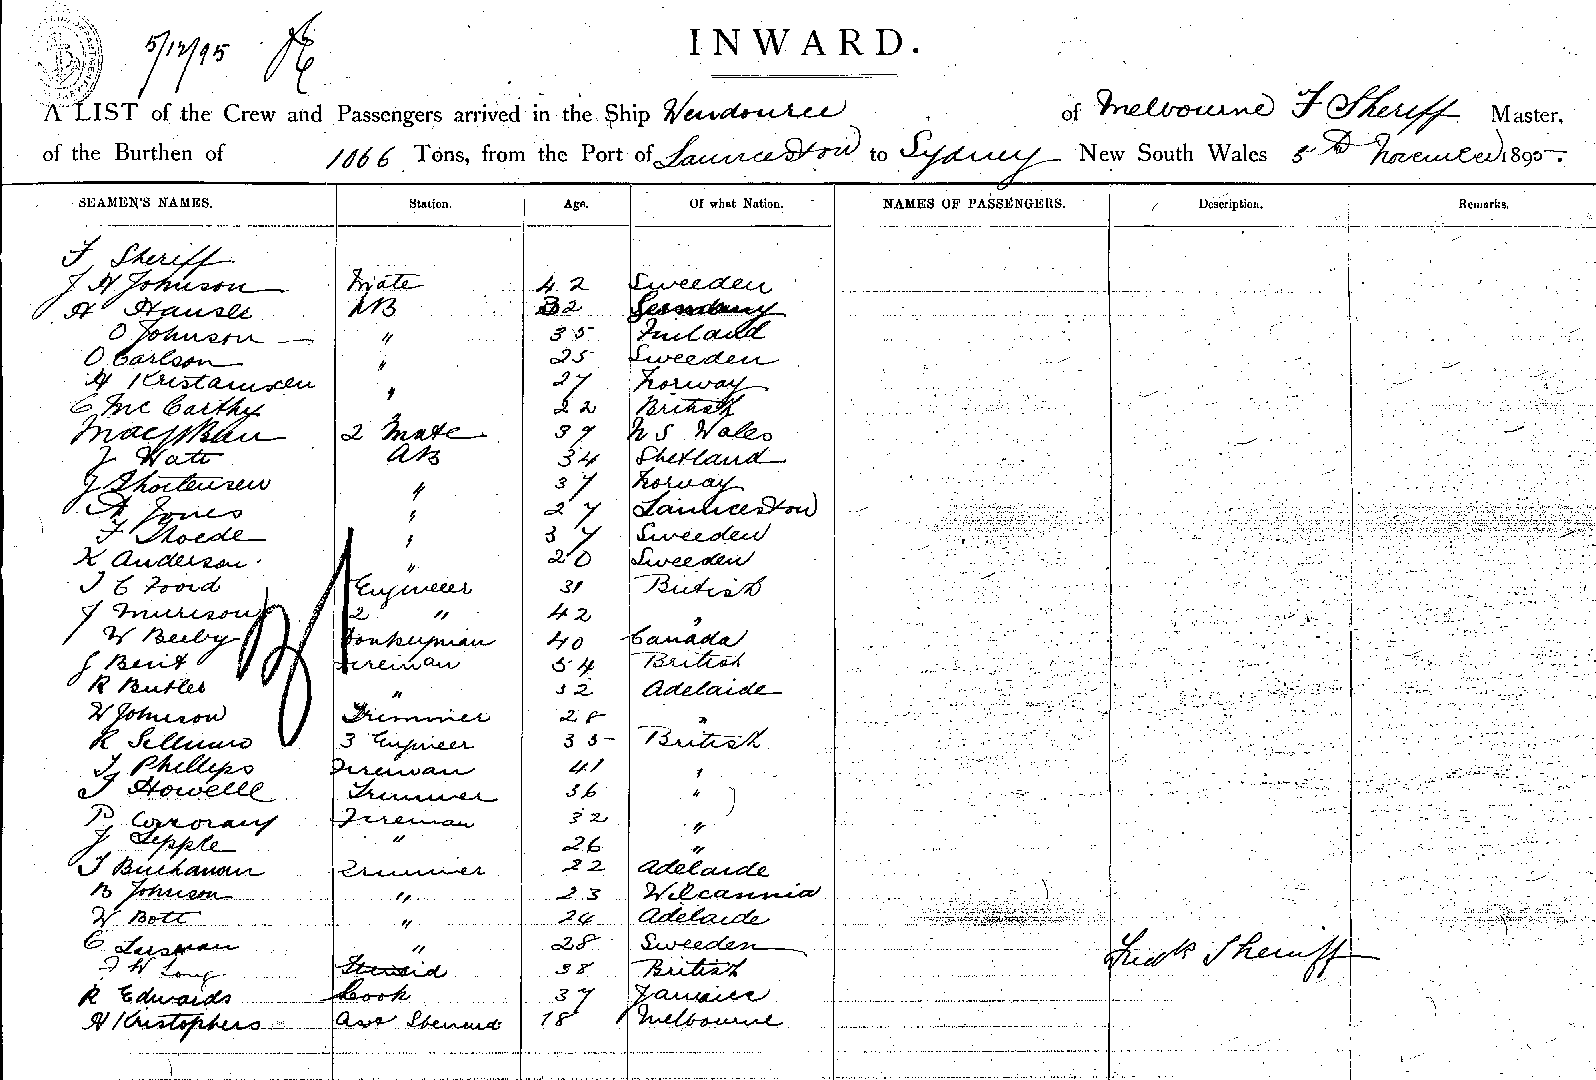 5/12/95
INWARD.
A LIST of the Crew and Passengers arrived in the Ship Wendouree of Melbourne F Sheriff Master,
of the Burthen of 1066 Tons, from the Port of Launceston to Sydney New South Wales 5th November 1895.
SEAMEN'S NAMES. Station. Age. Of what Nation. NAMES OF PASSENGERS. Description. Remarks.
F Sheriff
J H Johnson Mate 42 Sweeden
H AB 32 Germany
O Johnson " 35 Finland
O Carlson " 25 Sweeden
H Kristainsen " 27 Norway
C Mc Carthy 22 British
2 Mate 37 N S Wales
J Watt AB 34 Shetland
J Thortensen " 37 Norway
A Jones " 27 Launceston
F Thoede " 37 Sweeden
K Anderson " 20 Sweeden
J C Foord Engineer 31 British
J Murison 2 " 42 "
W Beeby Donkeyman 40 Canada
J Bent Fireman 54 British
R Butler " 32 Adelaide
W Johnson Trimmer 28 "
R 3 Engineer 35 British
J Phillips Fireman 41 "
J Howelll Trimmer 36 "
P Corcorany Fireman 32 "
J Tepple " 26 "
J Buchanan Trimmer 22 Adelaide
B Johnson " 23 Wilcannia
W Bott " 24 Adelaide
C " 28 Sweeden
Fredk Sheriff
F W Long Steward 38 British
R Edwards Cook 37 Jamaica
H Kristophers Asst Steward 18 Melbourne